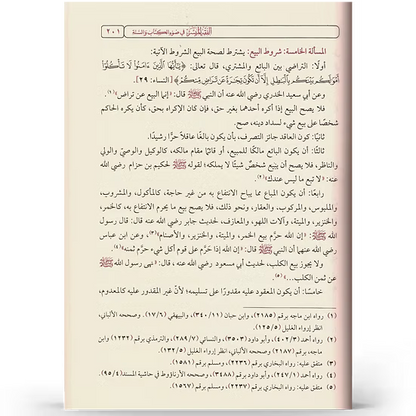 الفقه الميسر في ضوء الكتاب والسنة
٢٠١
المسألة الخامسة: شروط البيع: يشترط لصحة البيع الشروط الآتية:
أولًا: التراضي بين البائع والمشتري، قال تعالى: ﴿يَٰٓأَيُّهَا ٱلَّذِينَ ءَامَنُوا۟ لَا تَأْكُلُوٓا۟
أَمْوَٰلَكُم بَيْنَكُم بِٱلْبَٰطِلِ إِلَّآ أَن تَكُونَ تِجَٰرَةً عَن تَرَاضٍ مِّنكُمْ﴾ [النساء: ٢٩].
وعن أبي سعيد الخدري رضي الله عنه أن النبي ﷺ قال: «إنما البيع عن تراض»(١).
فلا يصح البيع إذا أكره أحدهما بغير حق، فإن كان الإكراه بحق، كأن يكره الحاكم
شخصًا على بيع شيء لسداد دينه، صح.
ثانيًا: كون العاقد جائز التصرف، بأن يكون بالغًا عاقلًا حرًّا رشيدًا.
ثالثًا: أن يكون البائع مالكًا للمبيع، أو قائمًا مقام مالكه، كالوكيل والوصي والولي
والناظر، فلا يصح أن يبيع شخصٌ شيئًا لا يملكه؛ لقوله ﷺ لحكيم بن حزام رضي الله
عنه: «لا تبع ما ليس عندك»(٢).
رابعًا: أن يكون المباع مما يباح الانتفاع به من غير حاجة، كالمأكول، والمشروب،
والملبوس، والمركوب، والعقار، ونحو ذلك، فلا يصح بيع ما يحرم الانتفاع به كالخمر،
والخنزير، والميتة، وآلات اللهو، والمعازف، لحديث جابر رضي الله عنه قال: قال رسول
الله ﷺ: «إن الله حرَّم بيع الخمر، والميتة، والخنزير، والأصنام»(٣). وعن ابن عباس
رضي الله عنهما أن النبي ﷺ قال: «إن الله إذا حَرَّم على قوم أكل شيء حرَّم ثمنه»(٤).
ولا يجوز بيع الكلب، لحديث أبي مسعود رضي الله عنه، قال: «نهى رسول الله ﷺ
عن ثمن الكلب...»(٥).
خامسًا: أن يكون المعقود عليه مقدورًا على تسليمه؛ لأن غير المقدور عليه كالمعدوم،
(١) رواه ابن ماجه برقم (٢١٨٥)، وابن حبان (٣٤٠/١١)، والبيهقي (١٧/٦)، وصححه الألباني،
انظر إرواء الغليل (١٢٥/٥).
(٢) رواه أحمد (٤٠٢/٣)، وأبو داود (٣٥٠٣)، والنسائي (٢٨٩/٧)، والترمذي برقم (١٢٣٢)، وابن
ماجه برقم (٢١٨٧) وصححه الألباني، انظر (إرواء الغليل ١٣٢/٥).
(٣) متفق عليه: رواه البخاري برقم (٢٢٣٦)، ومسلم برقم (١٥٨١).
(٤) رواه أحمد (٢٤٧/١)، وأبو داود برقم (٣٤٨٨)، وصححه الأرناؤوط في حاشية المسند (٩٥/٤).
(٥) متفق عليه: رواه البخاري برقم (٢٢٣٧)، ومسلم برقم (١٥٦٧).